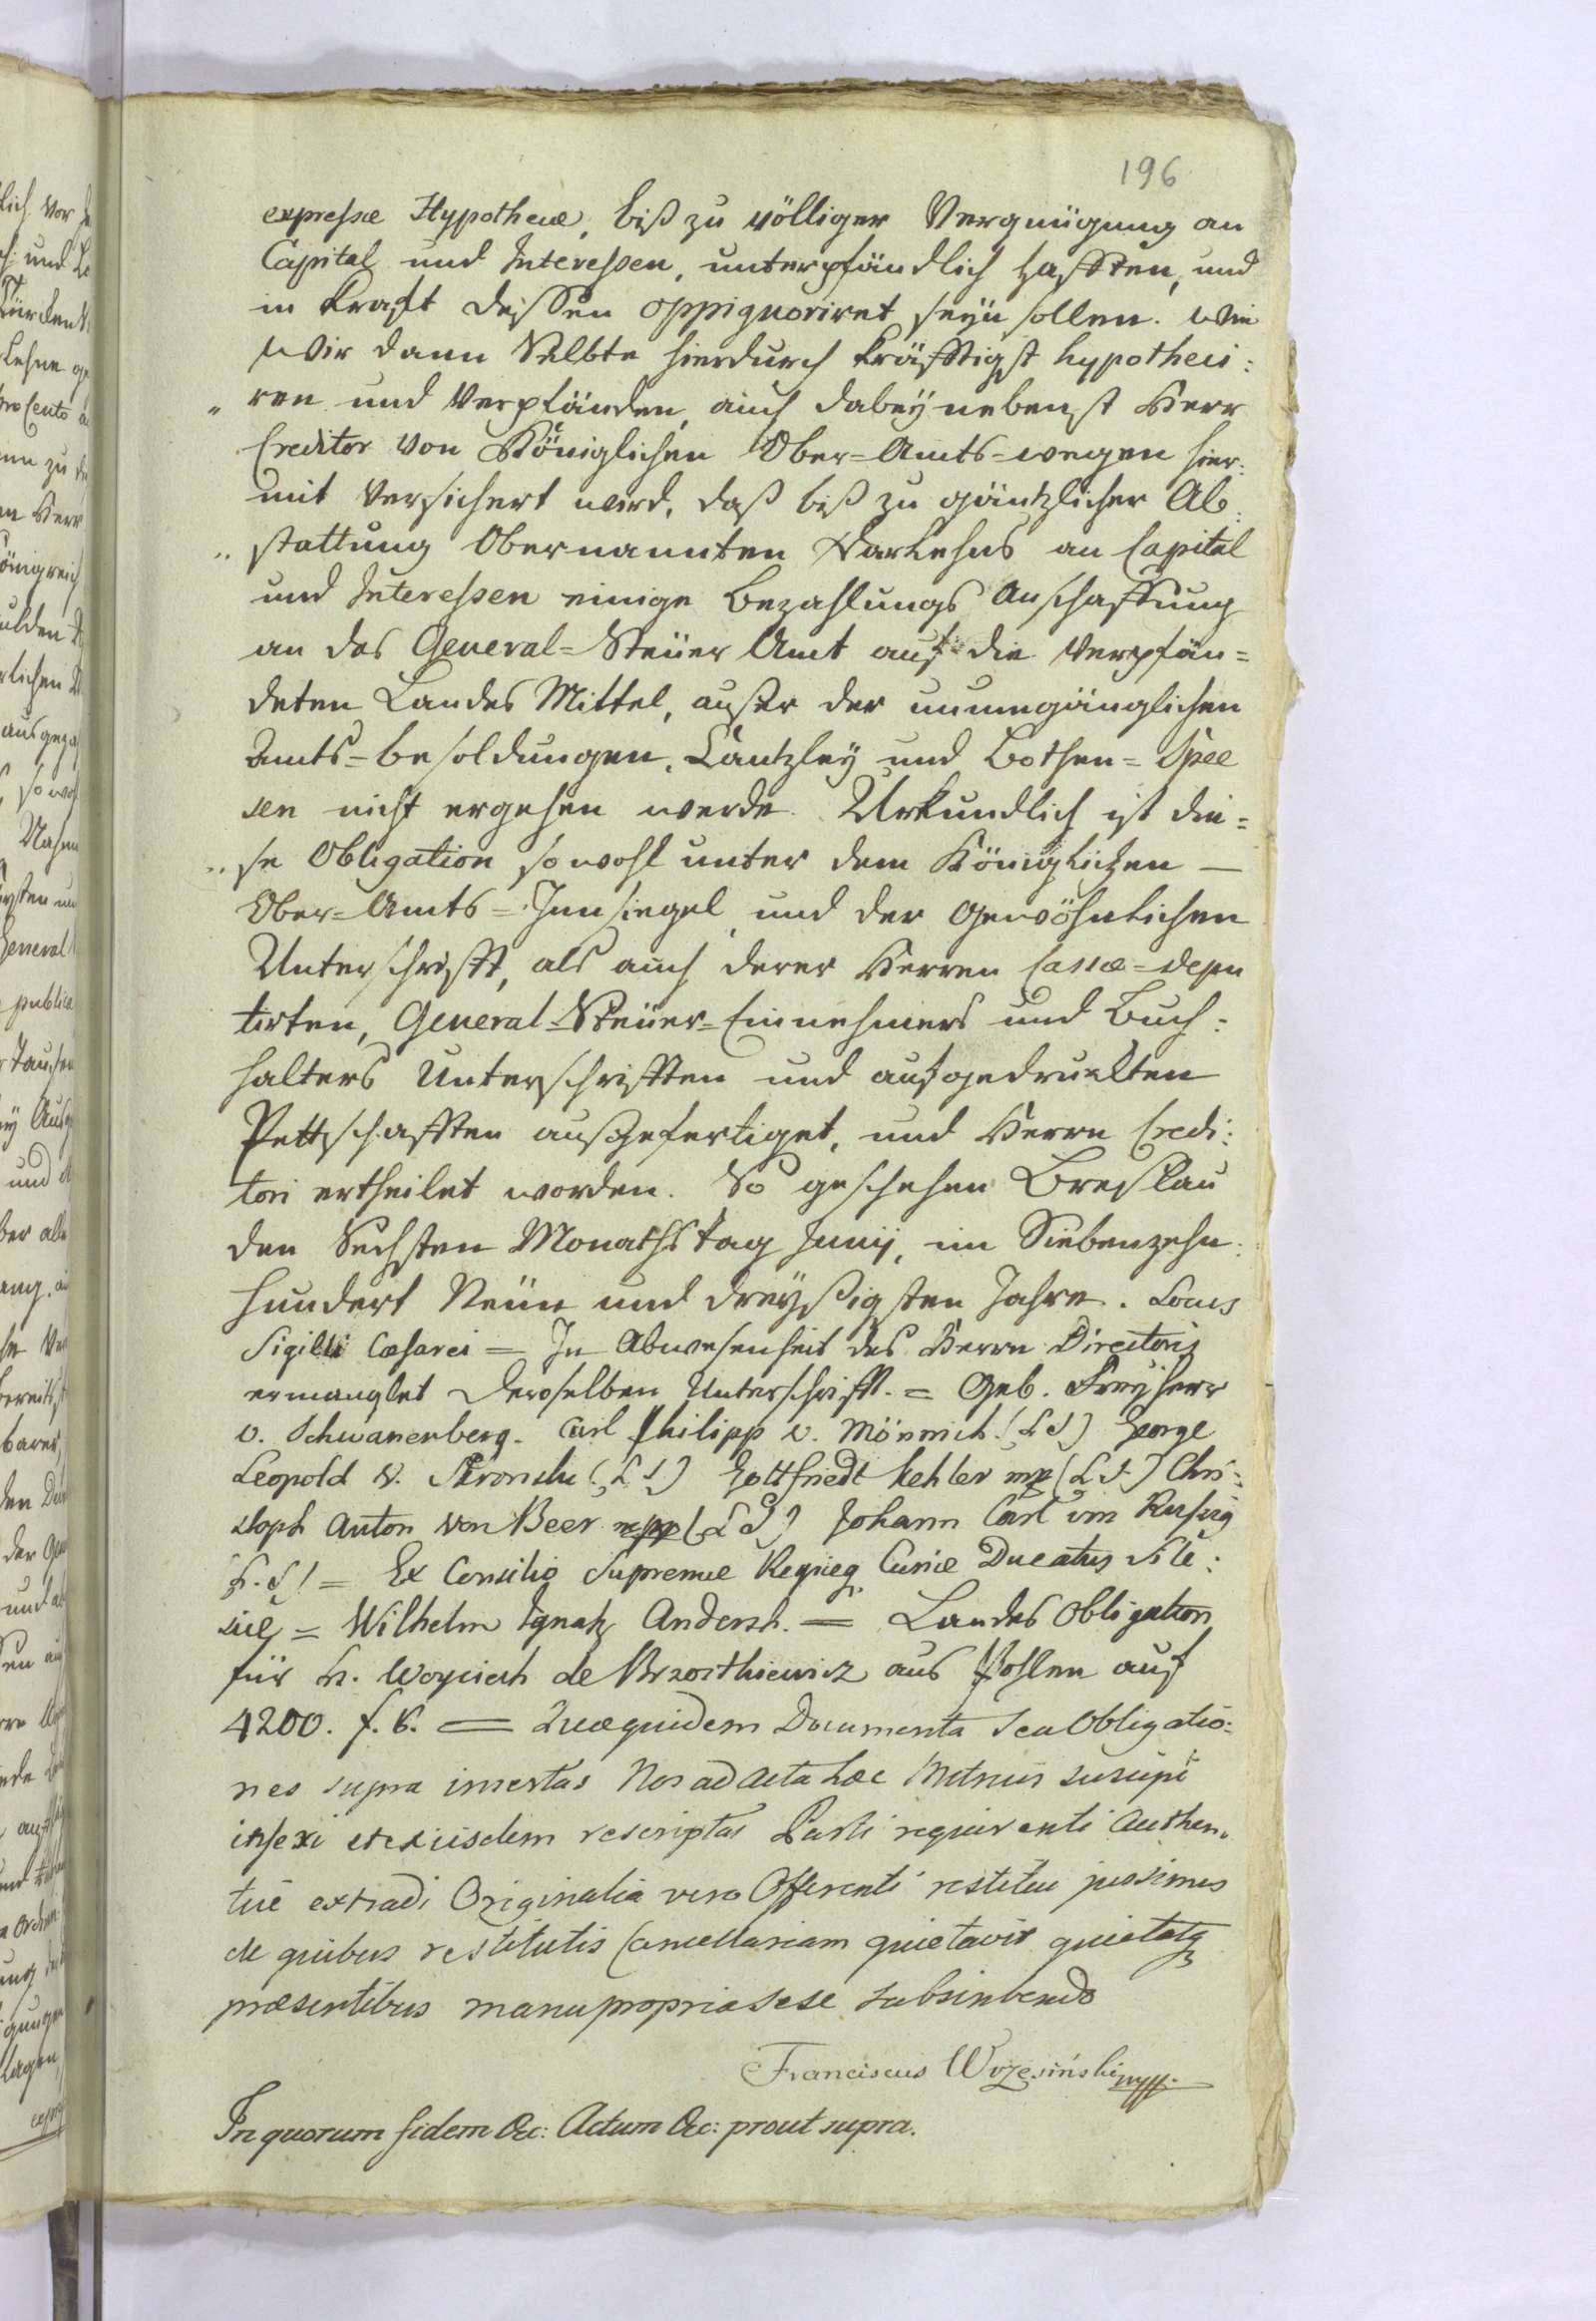 196
expressæ Hypothecæ, biß zu völliger Vergnügung an
Capital und Interessen, unterpfändlich hafften, und
in Krafft dessen oppignoriret seyn sollen. Wie
Wir dann Selbte hierdurch kräfftigst hypotheci:
„ren und Verpfänden, auch dabeynebenst Herr
Creditor von Königlichen Ober=Amts=wegen hier:
mit Versichert wird, daß biß zu gäntzlicher Ab:
„stattung Obernannten Darlehns an Capital
und Interessen einige Bezahlungs Anschaffung
an das General=Steüer Amt auf die Verpfän=
deten Landes Mittel, außer der unumgänglichen
Amts=besoldungen, Cantzley und Bothen=Spee
sen nicht ergehen werde. Urkundlich ist die=
„se Obligation sowohl unter dem Königlichen —
Ober=Amts=Innsiegel, und der Gewöhnlichen
Unterschrifft, als auch derer Herren Cassæ=depu
tirten, General=Steüer=Einnehmers und Buch:
halters Unterschrifften und aufgedruckten
Pettschafften außgefertiget, und Herrn Credi:
tori ertheilet worden. So geschehen Breßlau
den Sechsten Monathstag Junij, im Siebenzehn:
hundert Neün und dreyßigsten Jahre. Locus
Sigilli Cæsarei = In Abwesenheit des Herrn Directoris
ermanglet Deroselben Unterschrifft. = Geb. Freyherr
v. Schwanenberg. Carl Philipp v. Mönnich. (LS) George
Leopold v. (LS) Gottfriedt Kehler mp (L.S.) Chri:
stoph Anton von Beer mpp (LS) Johann Carl von
(L.S) = Ex Consilio Supremæ Regiæq Curiæ Ducatus Sile:
siæ = Wilhelm Ignatz Andersh. = Landes Obligation
für H. Woyciech de Brzosthiewicz aus Pohlen auf
4200. f. = Quæquidem Documenta seu Obligatio:
nes supra insertas Nos ad Acta hæc Metrices suscipi
ingexi et exiisdem rescriptas Parti requirenti Authen„
tice extradi Originalia vero Offerenti restitui jussimus
de quibus restitutis Cancellariam quietavit quietatq
præsentibus manupropria sese subscribendo
Franciscus Wrzesiński mpp.
In quorum fidem &c: Actum &c: prout supra.